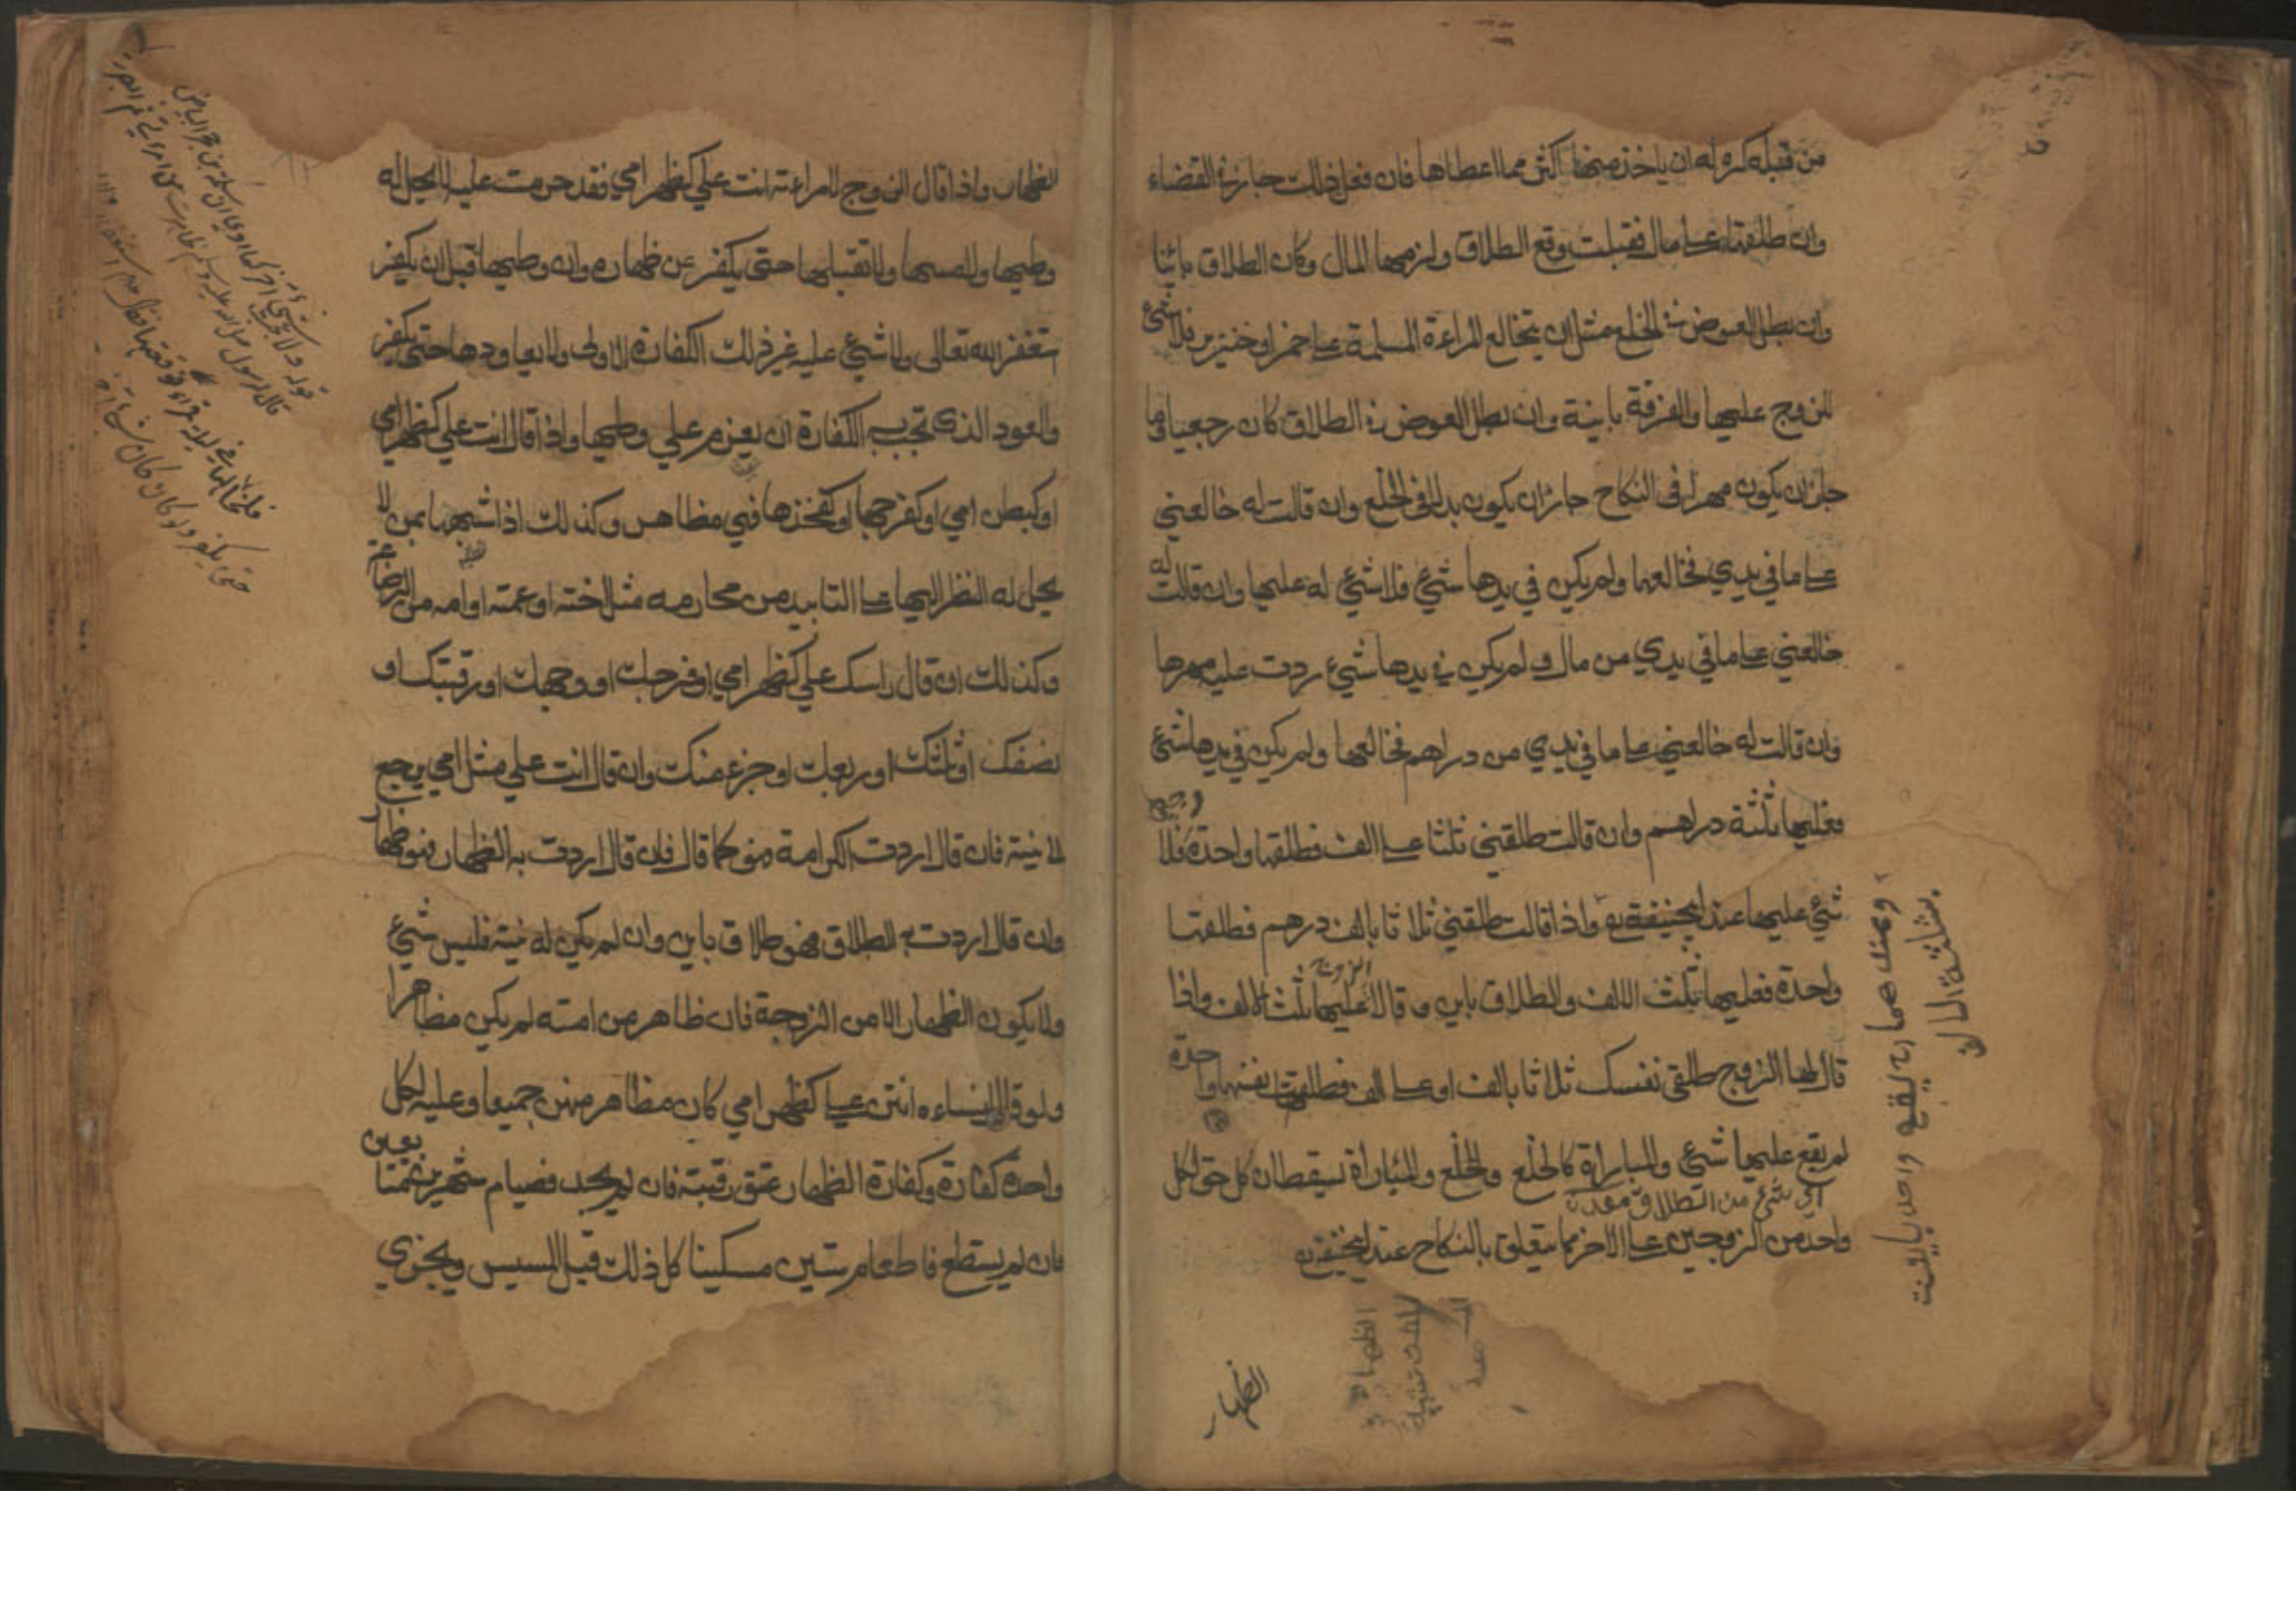 من قبله كره له ان ياخذ منها اكثر مما اعطاها فان فعل ذلك جاز في القضاء
وان طلقها على مال فقبلت وقع الطلاق ولزمها المال وكان الطلاق بائنا
وان بطل العوض في الخلع مثل ان يخالع المراءة المسلمة على خمر او خنزير فلا شئ
للزوج عليها والفرقة باينة وان بطل العوض في الطلاق كان رجعيا وما
جاز ان يكون مهرا في النكاح جاز ان يكون بدلا في الخلع وان قالت له خالعني
على ما في يدي فخالعها ولم يكن في يدها شئ فلا شئ له عليها وان قالت له
خالعني على ما في يدي من مال ولم يكن في يدها شئ ردت عليه مهرها
وان قالت له خالعني على ما في يدي من دراهم فخالعها ولم يكن في يدها شئ
فعليها ثلثة دراهم وان قالت طلقني ثلثا على الف فطلقها واحدة فلا
شئ عليها عند ابيحنيفة واذا قالت طلقني ثلاثا بالف درهم فطلقها
واحدة فعليها ثلث الالف والطلاق باين وقالا عليها ثلث الالف واذا
قال لها الزوج طلقي نفسك ثلاثا بالف او على الف فطلقت نفسها واحدة
لم يقع عليها شئ والمباراة كالخلع والخلع والمباراة يسقطان كل حق لكل
اي شئ من الطلاق
واحد من الزوجين على الاخر مما يتعلق بالنكاح عند ابيحنيفة
وعندهما رح يقع واحد بالينت
بثلثة المال
الظهار
الظهار واذا قال الزوج لامراءته انت علي كظهر امي فقد حرمت عليه لا يحل له
وطيها ولا لمسها ولا تقبيلها حتى يكفر عن ظهاره وان وطيها قبل ان يكفر
ستغفر الله تعالى ولا شئ عليه غير ذلك الكفارة الاولى ولا يعاودها حتى يكفر
والعود الذي تجب به الكفارة ان يعزم على وطيها واذا قال انت علي كظهر امي
او كبطن امي او كفرجها او كفخذها فهي مظاهر وكذلك اذا شبهها بمن لا
يحل له النظر اليها على التابيد من محارمه مثل اخته او عمته او امه من الرضاعة
وكذلك ان قال راسك علي كظهر امي او فرجك او وجهك او رقبتك او
نصفك او ثلثك او ربعك او جزء منك وان قال انت علي مثل امي يرجع
الى نيته فان قال اردت الكرامة فهو كما قال فان قال اردت به الظهار فهو ظهار
وان قال اردت به الطلاق فهو طلاق باين وان لم يكن له نية فليس شئ
ولا يكون الظهار الا من الزوجة فان ظاهر من امته لم يكن مظاهرا
ولو قال لنساءه انتن علي كظهر امي كان مظاهر منهن جميعا وعليه لكل
واحدة كفارة وكفارة الظهار عتق رقبة فان لم يجد فصيام شهرين متتابعين
فان لم يستطع فاطعام ستين مسكينا كل ذلك قبل المسيس ويجزي